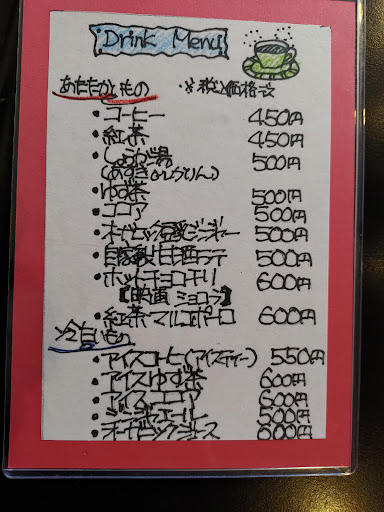 Drink Menu
あたたかいもの ※税込価格で
・コーヒー 450円
・紅茶 450円
・しょうが湯 500円
(あずき or かりん)
・ゆず茶 500円
・ココア 500円
・オーガニック豆乳ジンジャー 500円
・自家製甘酒ラテ 500円
・ホットチョコチリ 600円
【映画 ショコラ】
・紅茶マルコポーロ 600円
冷たいもの
・アイスコーヒー(アイスティー) 550円
・アイスゆず茶 600円
・アイスココア 600円
・ジンジャーエール 500円
・オーガニックジュース 600円